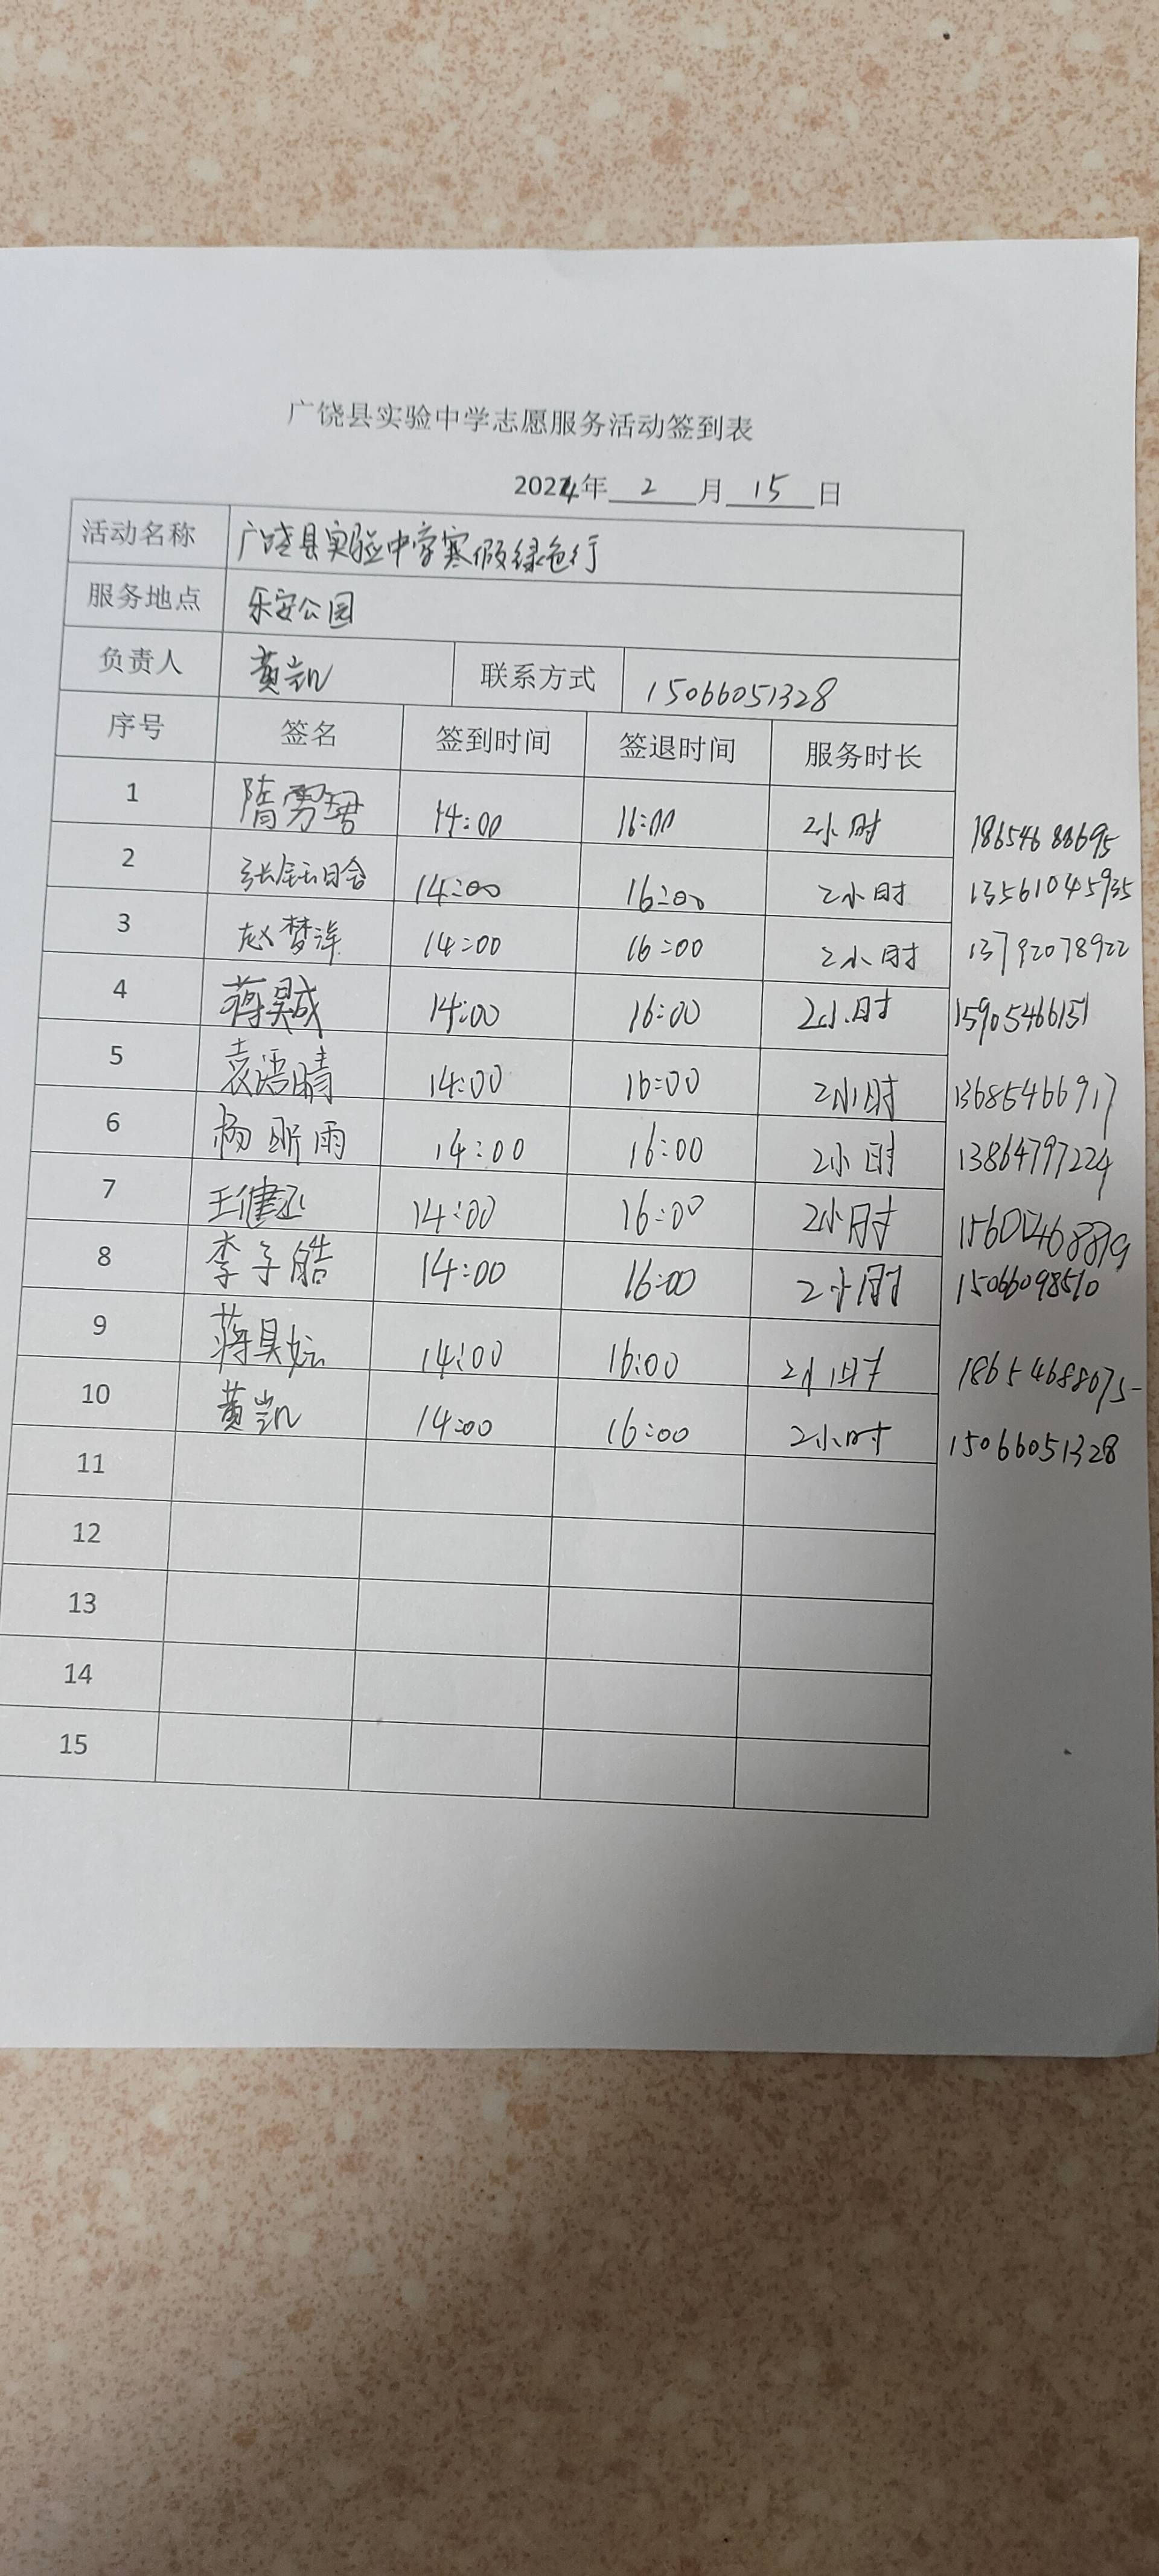 广饶县实验中学志愿服务活动签到表
2024年 2 月 15 日
活动名称 广饶县实验中学寒假绿色行
服务地点 乐安公园
负责人 黄凯 联系方式 15066051328
序号 签名 签到时间 签退时间 服务时长
1 隋雳珺 14:00 16:00 2小时 18654688695
2 张钰晗 14:00 16:00 2小时 13561045935
3 赵梦洋 14:00 16:00 2小时 13792078922
4 蒋昊成 14:00 16:00 2小时 15905466151
5 袁语晴 14:00 16:00 2小时 13685466917
6 杨昕雨 14:00 16:00 2小时 13864797224
7 王健丞 14:00 16:00 2小时
8 李子皓 14:00 16:00 2小时 15066098510
9 蒋昊妘 14:00 16:00 2小时 18654688075
10 黄凯 14:00 16:00 2小时 15066051328
11
12
13
14
15